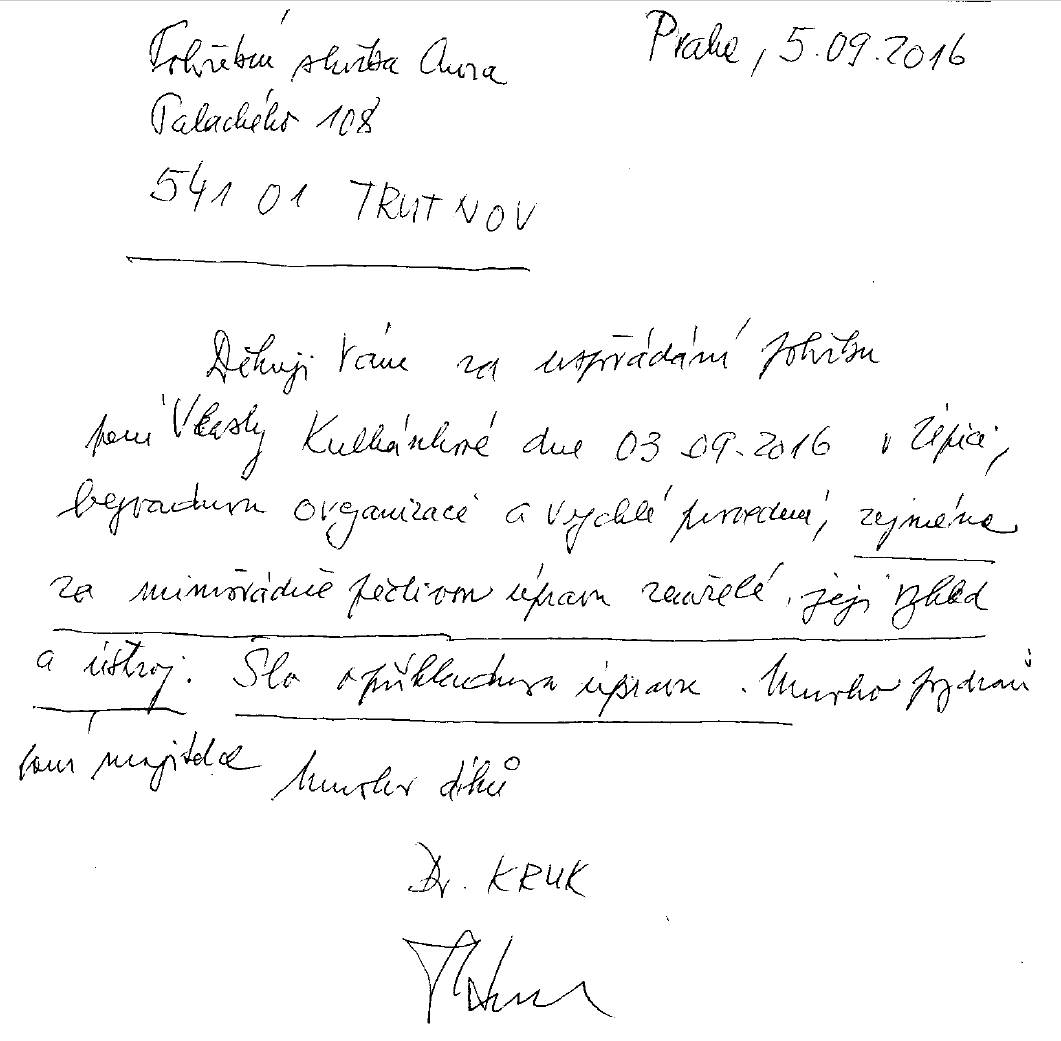 Pohřební služba Aura
Praha, 5.09.2016
Palackého 108
541 01 TRUTNOV
Děkuji Vám za uspořádání pohřbu
paní Vlasty Kulhánkové dne 03.09.2016 v Úpici,
bezvadnou organizaci a rychlé provedení, zejména
za mimořádně pečlivou úpravu zemřelé, její vzhled
a ústroj. Šlo o příkladnou úpravu. Mnoho pozdravů
paní majitelce
Mnoho díků
Dr. KRUK